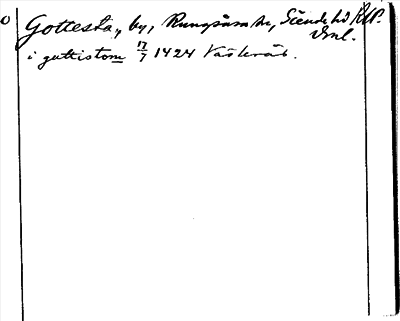 Gottesta, by, Rungsåra sn, Siende hd RAP.
Vsml.
i guttistom 17/7 1424 Västerås.